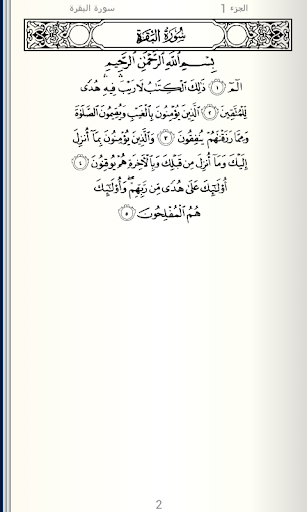 الجزء 1 سورة البقرة
سُورَةُ البَقَرَةِ
بِسْمِ ٱللَّهِ ٱلرَّحْمَٰنِ ٱلرَّحِيمِ
الٓمٓ ١ ذَٰلِكَ ٱلْكِتَٰبُ لَا رَيْبَ ۛ فِيهِ ۛ هُدًى
لِّلْمُتَّقِينَ ٢ ٱلَّذِينَ يُؤْمِنُونَ بِٱلْغَيْبِ وَيُقِيمُونَ ٱلصَّلَوٰةَ
وَمِمَّا رَزَقْنَٰهُمْ يُنفِقُونَ ٣ وَٱلَّذِينَ يُؤْمِنُونَ بِمَآ أُنزِلَ
إِلَيْكَ وَمَآ أُنزِلَ مِن قَبْلِكَ وَبِٱلْءَاخِرَةِ هُمْ يُوقِنُونَ ٤
أُو۟لَٰٓئِكَ عَلَىٰ هُدًى مِّن رَّبِّهِمْ ۖ وَأُو۟لَٰٓئِكَ
هُمُ ٱلْمُفْلِحُونَ ٥
2